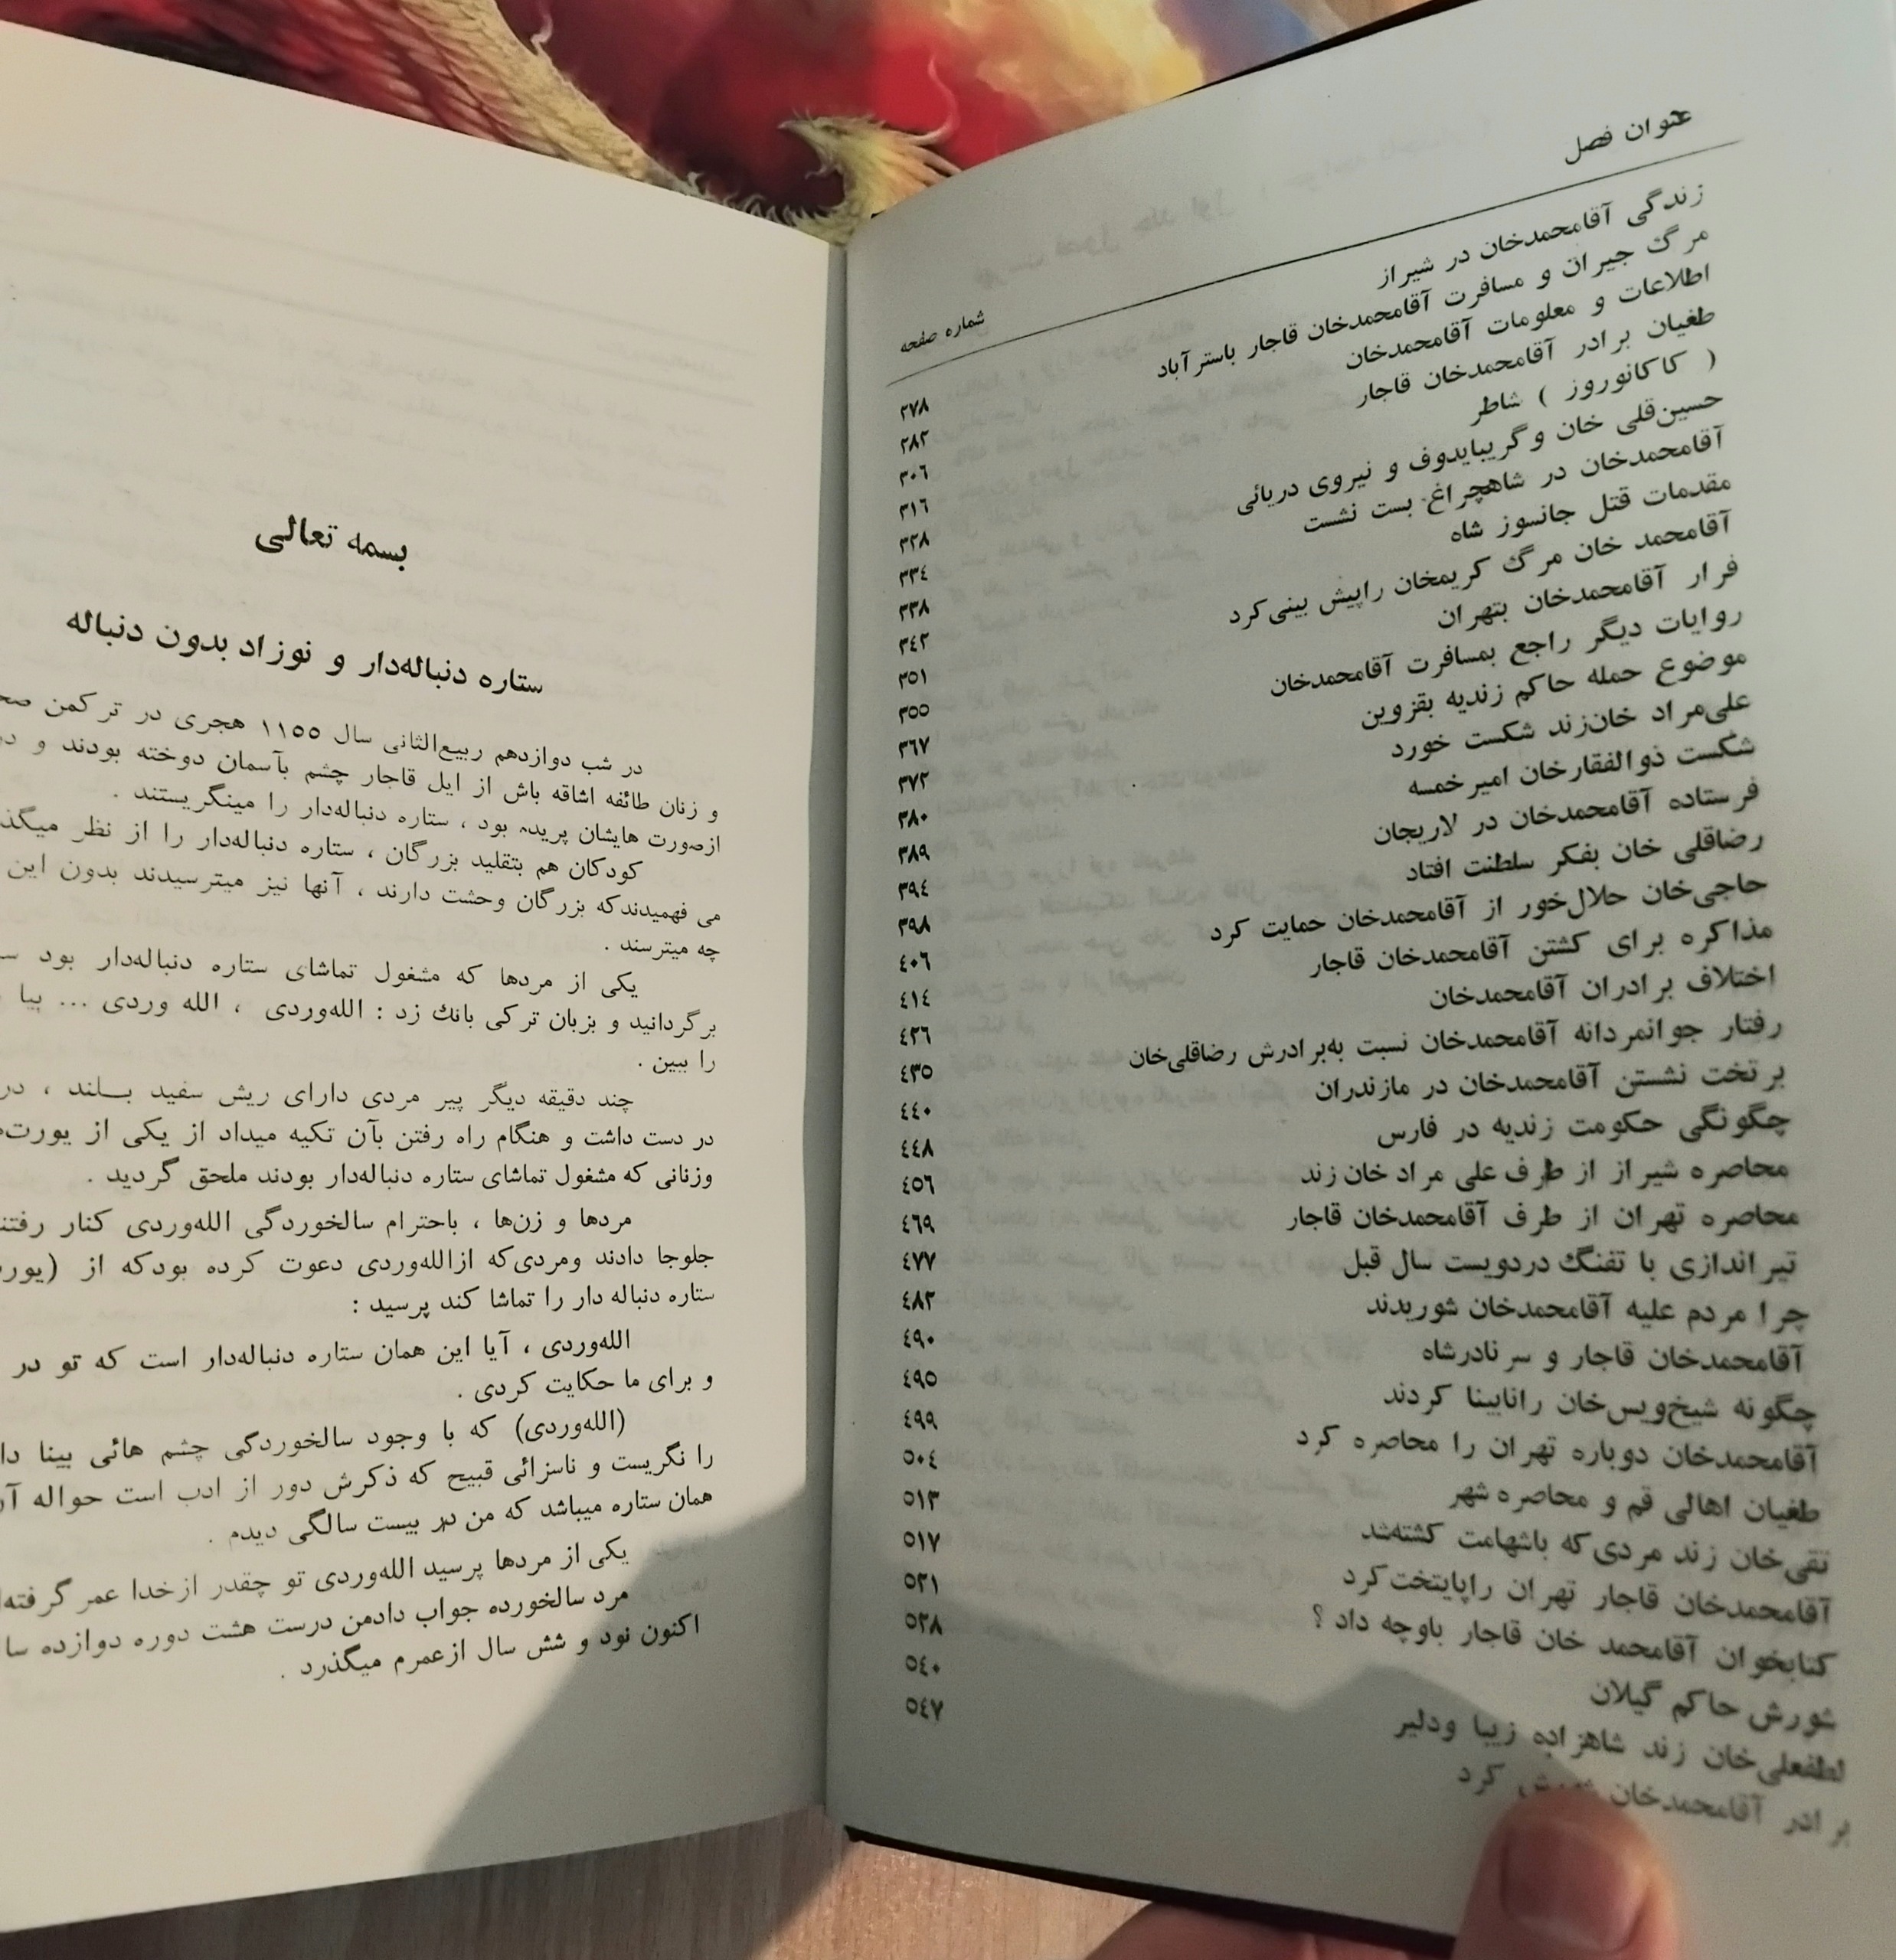 عنوان فصل
شماره صفحه
زندگی آقامحمدخان در شیراز ۲۷۸
مرگ جیران و مسافرت آقامحمدخان قاجار باسترآباد ۲۸۲
اطلاعات و معلومات آقامحمدخان ۳۰۶
طغیان برادر آقامحمدخان قاجار ۳۱۶
( کاکانوروز ) شاطر ۳۲۸
حسین‌قلی خان وگریبایدوف و نیروی دریائی ۳۳٤
آقامحمدخان در شاهچراغ بست نشست ۳۳۸
مقدمات قتل جانسوز شاه ۳٤۲
آقامحمد خان مرگ کریمخان راپیش بینی‌کرد ۳٥۱
فرار آقامحمدخان بتهران ۳٥٥
روایات دیگر راجع بمسافرت آقامحمدخان ۳۶۷
موضوع حمله حاکم زندیه بقزوین ۳۷۲
علی‌مراد خان‌زند شکست خورد ۳۸۰
شکست ذوالفقارخان امیرخمسه ۳۸۹
فرستاده آقامحمدخان در لاریجان ۳۹٤
رضاقلی خان بفکر سلطنت افتاد ۳۹۸
حاجی‌خان حلال‌خور از آقامحمدخان حمایت کرد ٤۰۶
مذاکره برای کشتن آقامحمدخان قاجار ٤۱٤
اختلاف برادران آقامحمدخان ٤۲۶
رفتار جوانمردانه آقامحمدخان نسبت به‌برادرش رضاقلی‌خان ٤۳٥
برتخت نشستن آقامحمدخان در مازندران ٤٤۰
چگونگی حکومت زندیه در فارس ٤٤۸
محاصره شیراز از طرف علی مراد خان زند ٤٥۶
محاصره تهران از طرف آقامحمدخان قاجار ٤۶۹
تیراندازی با تفنگ دردویست سال قبل ٤۷۷
چرا مردم علیه آقامحمدخان شوریدند ٤۸۲
آقامحمدخان قاجار و سر نادرشاه ٤۹۰
چگونه شیخ‌ویس‌خان رانابینا کردند ٤۹٥
آقامحمدخان دوباره تهران را محاصره کرد ٤۹۹
طغیان اهالی قم و محاصره شهر ٥۰٤
تقی‌خان زند مردی‌که باشهامت کشته‌شد ٥۱۳
آقامحمدخان قاجار تهران راپایتخت‌کرد ٥۱۷
کتابخوان آقامحمد خان قاجار باوچه داد ؟ ٥۲۱
شورش حاکم گیلان ٥۲۸
لطفعلی‌خان زند شاهزاده زیبا ودلیر ٥٤۰
برادر آقامحمدخان شورش کرد ٥٤۷
بسمه تعالی
ستاره دنباله‌دار و نوزاد بدون دنباله
در شب دوازدهم ربیع‌الثانی سال ۱۱٥٥ هجری در ترکمن
و زنان طائفه اشاقه باش از ایل قاجار چشم بآسمان دوخته بودند و
ازصورت هایشان پریده بود ، ستاره دنباله‌دار را مینگریستند .
کودکان هم بتقلید بزرگان ، ستاره دنباله‌دار را از نظر
می فهمیدندکه بزرگان وحشت دارند ، آنها نیز میترسیدند بدون این
چه میترسند .
یکی از مردها که مشغول تماشای ستاره دنباله‌دار بود
برگردانید و بزبان ترکی بانك زد : الله‌وردی ، الله وردی ... بیا
را ببین .
چند دقیقه دیگر پیر مردی دارای ریش سفید بلند ، در
در دست داشت و هنگام راه رفتن بآن تکیه میداد از یکی از
وزنانی که مشغول تماشای ستاره دنباله‌دار بودند ملحق گردید .
مردها و زن‌ها ، باحترام سالخوردگی الله‌وردی کنار
جلوجا دادند ومردی‌که ازالله‌وردی دعوت کرده بودکه از
ستاره دنباله دار را تماشا کند پرسید :
الله‌وردی ، آیا این همان ستاره دنباله‌دار است که تو در
و برای ما حکایت کردی .
(الله‌وردی) که با وجود سالخوردگی چشم هائی بینا
را نگریست و ناسزائی قبیح که ذکرش دور از ادب است حواله
همان ستاره میباشد که من در بیست سالگی دیدم .
یکی از مردها پرسید الله‌وردی تو چقدر ازخدا عمر
مرد سالخورده جواب دادمن درست هشت دوره دوازده
اکنون نود و شش سال ازعمرم میگذرد .